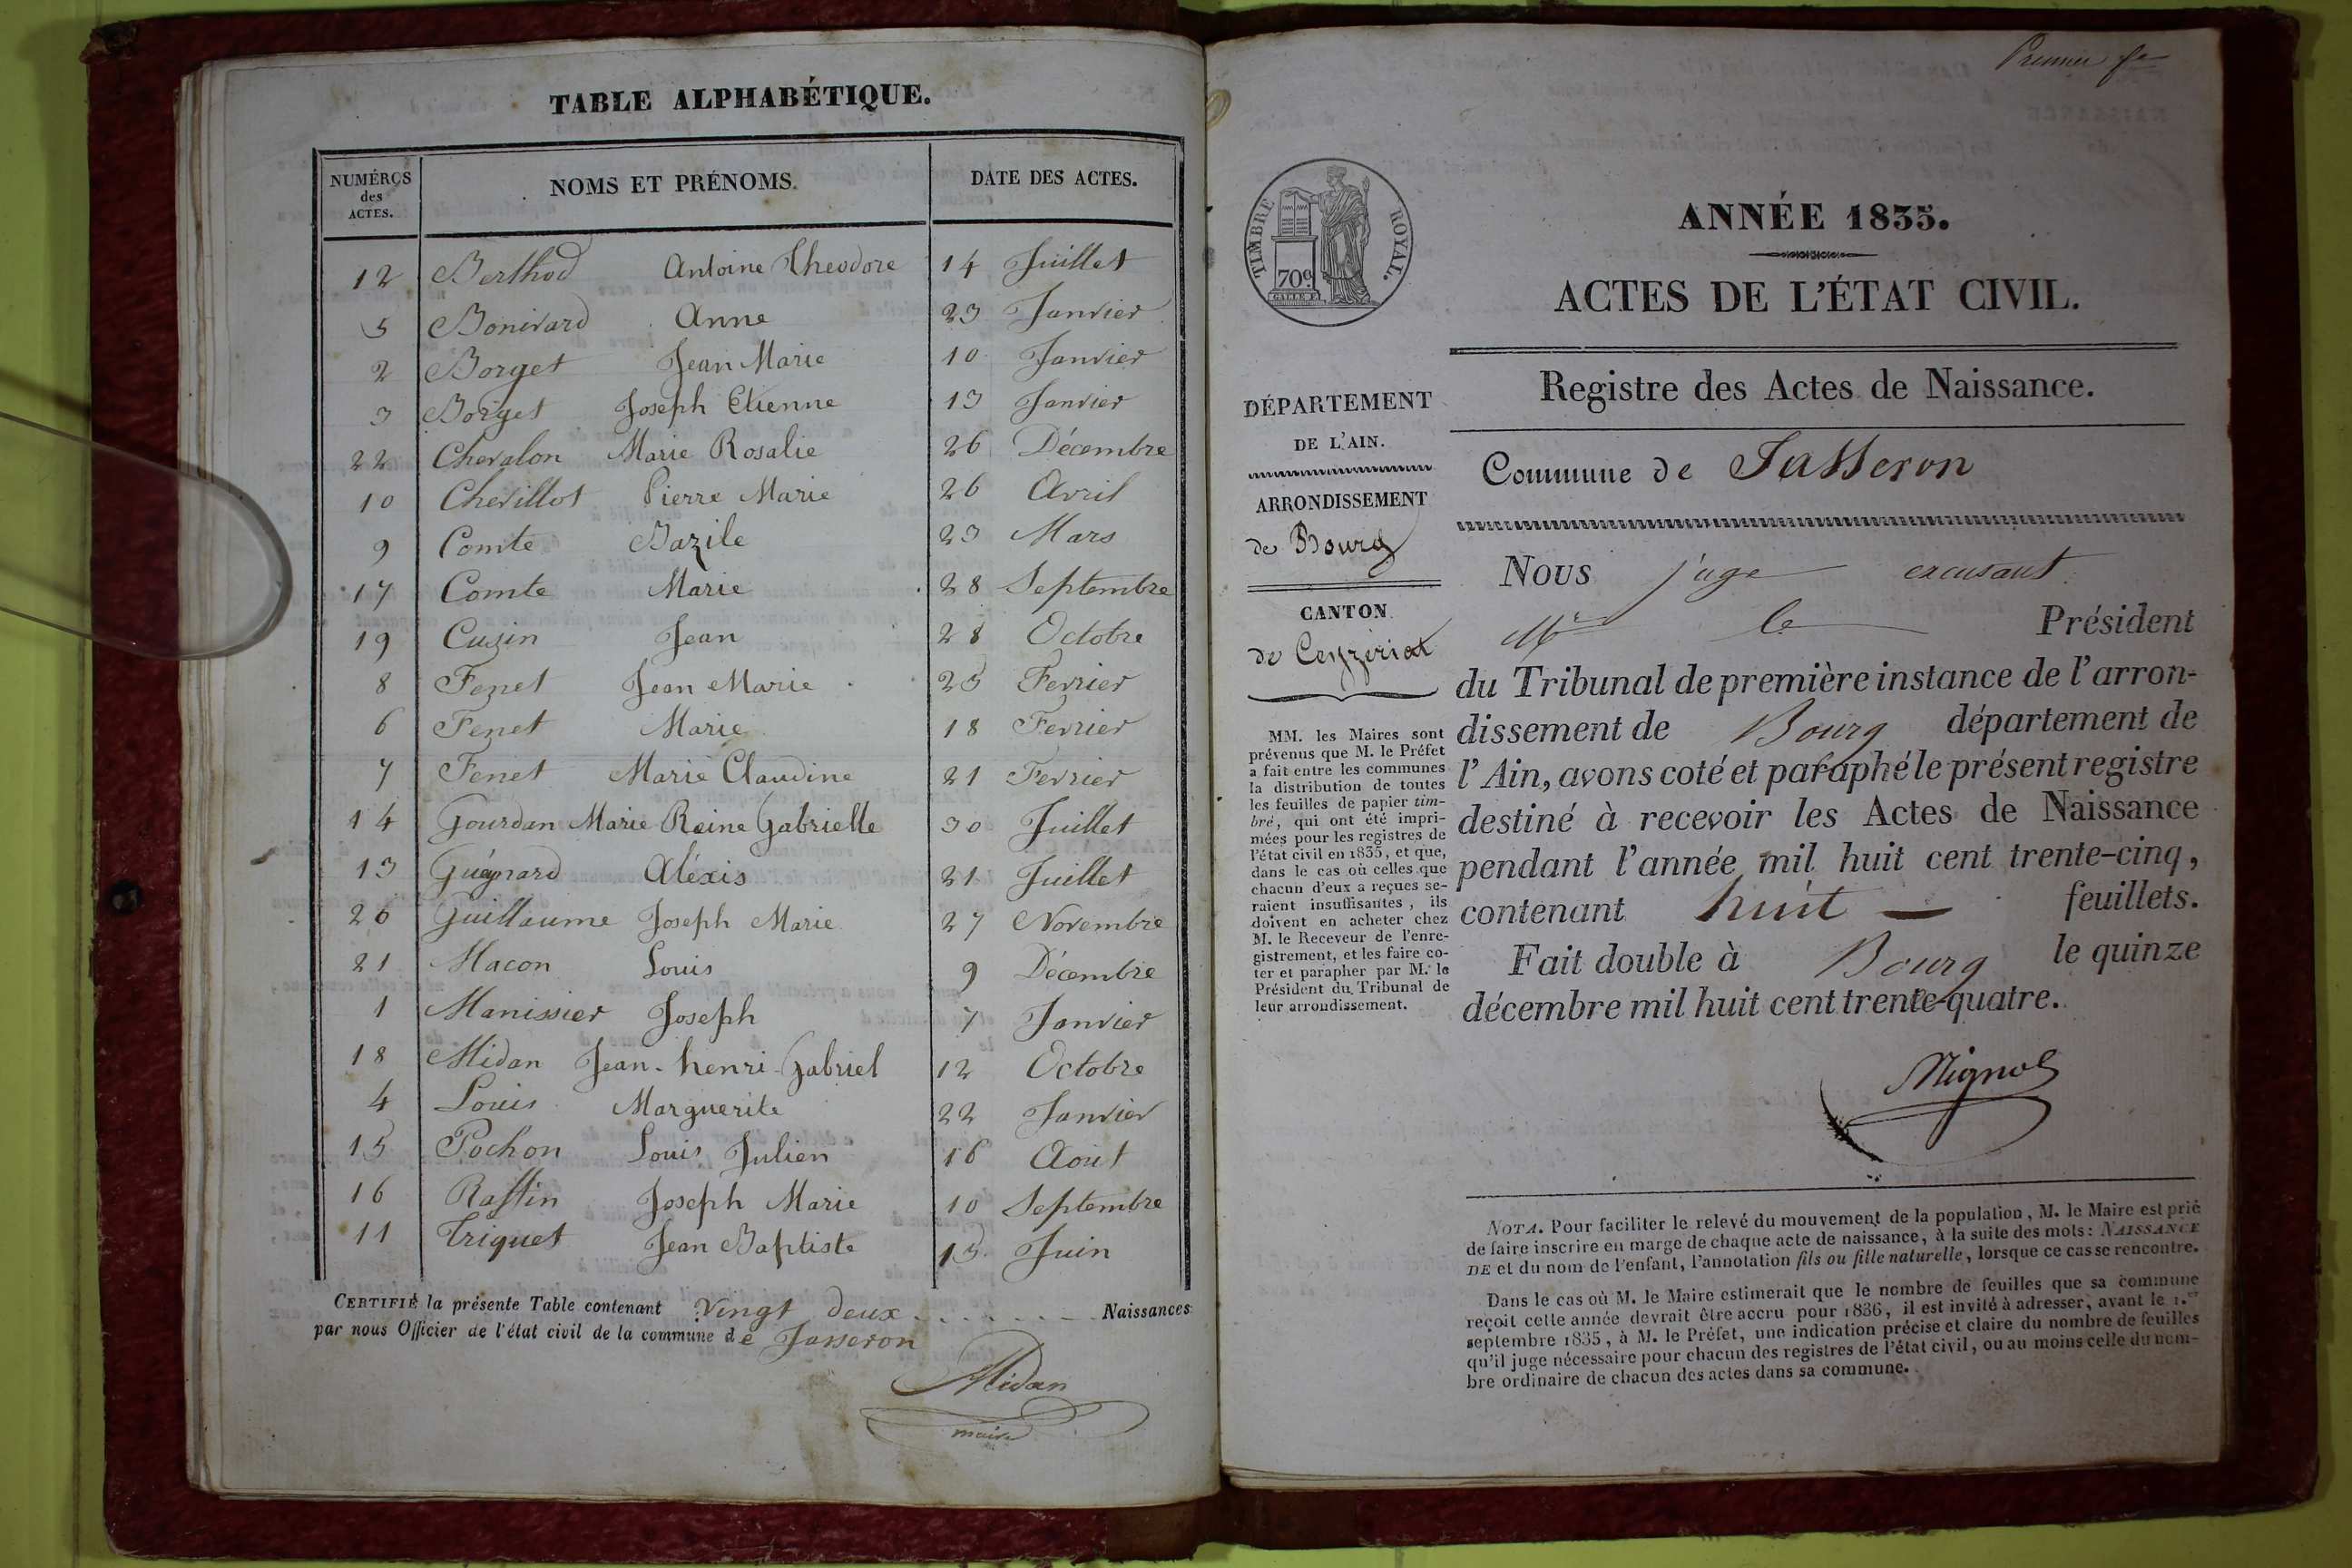 TABLE ALPHABÉTIQUE.
NUMÉROS des ACTES. NOMS ET PRÉNOMS. DATE DES ACTES.
12 Berthod Antoine Theodore 14 Juillet
5 Bonivard Anne 23 Janvier
2 Borget Jean Marie 10 Janvier
3 Borget Joseph Etienne 13 Janvier
22 Chevalon Marie Rosalie 26 Décembre
10 Chevillot Pierre Marie 26 Avril
9 Comte Bazile 23 Mars
17 Comte Marie 28 Septembre
19 Cuzin Jean 28 Octobre
8 Fenet Jean Marie 25 Fevrier
6 Fenet Marie 18 Fevrier
7 Fenet Marie Claudine 21 Fevrier
14 Gourdan Marie Reine Gabrielle 30 Juillet
13 Guégnard Aléxis 21 Juillet
20 Guillaume Joseph Marie 27 Novembre
21 Macon Louis 9 Décembre
1 Manissier Joseph 7 Janvier
18 Midan Jean-henri-Gabriel 12 Octobre
4 Louis Marguerite 22 Janvier
15 Pochon Louis Julien 16 Aout
16 Raffin Joseph Marie 10 Septembre
11 Triquet Jean Baptiste 15 Juin
CERTIFIÉ la présente Table contenant Vingt deux Naissances
par nous Officier de l'état civil de la commune de Jasseron
Midan
maire
Premier
TIMBRE ROYAL.
70c
ANNÉE 1835.
ACTES DE L'ÉTAT CIVIL.
Registre des Actes de Naissance.
DÉPARTEMENT
DE L'AIN.
ARRONDISSEMENT
de Bourg
CANTON
de Ceyzériat
MM. les Maires sont
prévenus que M. le Préfet
a fait entre les communes
la distribution de toutes
les feuilles de papier tim-
bré, qui ont été impri-
mées pour les registres de
l'état civil en 1835, et que,
dans le cas où celles que
chacun d'eux a reçues se-
raient insuffisantes, ils
doivent en acheter chez
M. le Receveur de l'enre-
gistrement, et les faire co-
ter et parapher par M. le
Président du Tribunal de
leur arrondissement.
Commune de Jasseron
Nous juge excusant
Mr le Président
du Tribunal de première instance de l'arron-
dissement de Bourg département de
l'Ain, avons coté et paraphé le présent registre
destiné à recevoir les Actes de Naissance
pendant l'année mil huit cent trente-cinq,
contenant huit feuillets.
Fait double à Bourg le quinze
décembre mil huit cent trente-quatre.
NOTA. Pour faciliter le relevé du mouvement de la population, M. le Maire est prié
de faire inscrire en marge de chaque acte de naissance, à la suite des mots: NAISSANCE
DE et du nom de l'enfant, l'annotation fils ou fille naturelle, lorsque ce cas se rencontre.
Dans le cas où M. le Maire estimerait que le nombre de feuilles que sa commune
reçoit cette année devrait être accru pour 1836, il est invité à adresser, avant le 1.er
septembre 1835, à M. le Préfet, une indication précise et claire du nombre de feuilles
qu'il juge nécessaire pour chacun des registres de l'état civil, ou au moins celle du nom-
bre ordinaire de chacun des actes dans sa commune.